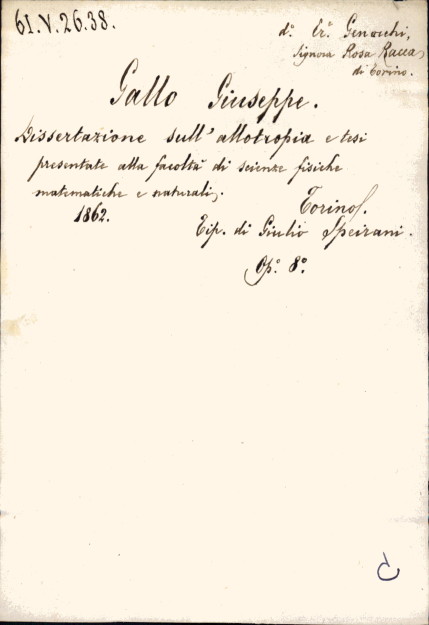 61.V.26.38.
d.º Er.ª Genocchi,
Signora Rosa Racca,
di Torino.
Gallo Giuseppe.
Dissertazione sull'allotropia e tesi
presentate alla facoltà di scienze fisiche
matematiche e naturali,.
1862.
Torino.
Tip. di Giulio Speirani.
Op.º 8.º